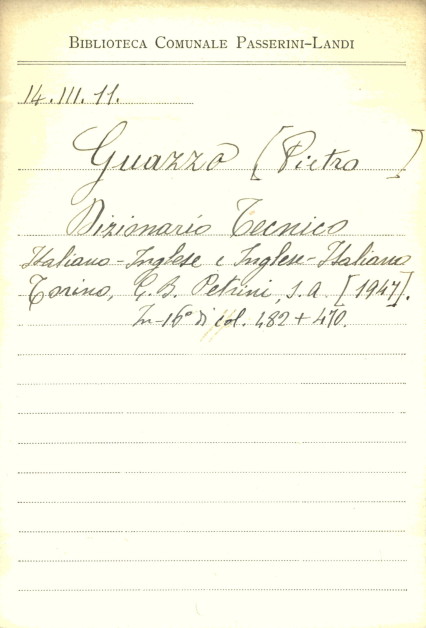 BIBLIOTECA COMUNALE PASSERINI-LANDI
14.III.11.
Guazzo [Pietro]
Dizionario Tecnico
Italiano-Inglese e Inglese-Italiano
Torino, G. B. Petrini, s.a. [1947].
In-16° di col. 482+470.